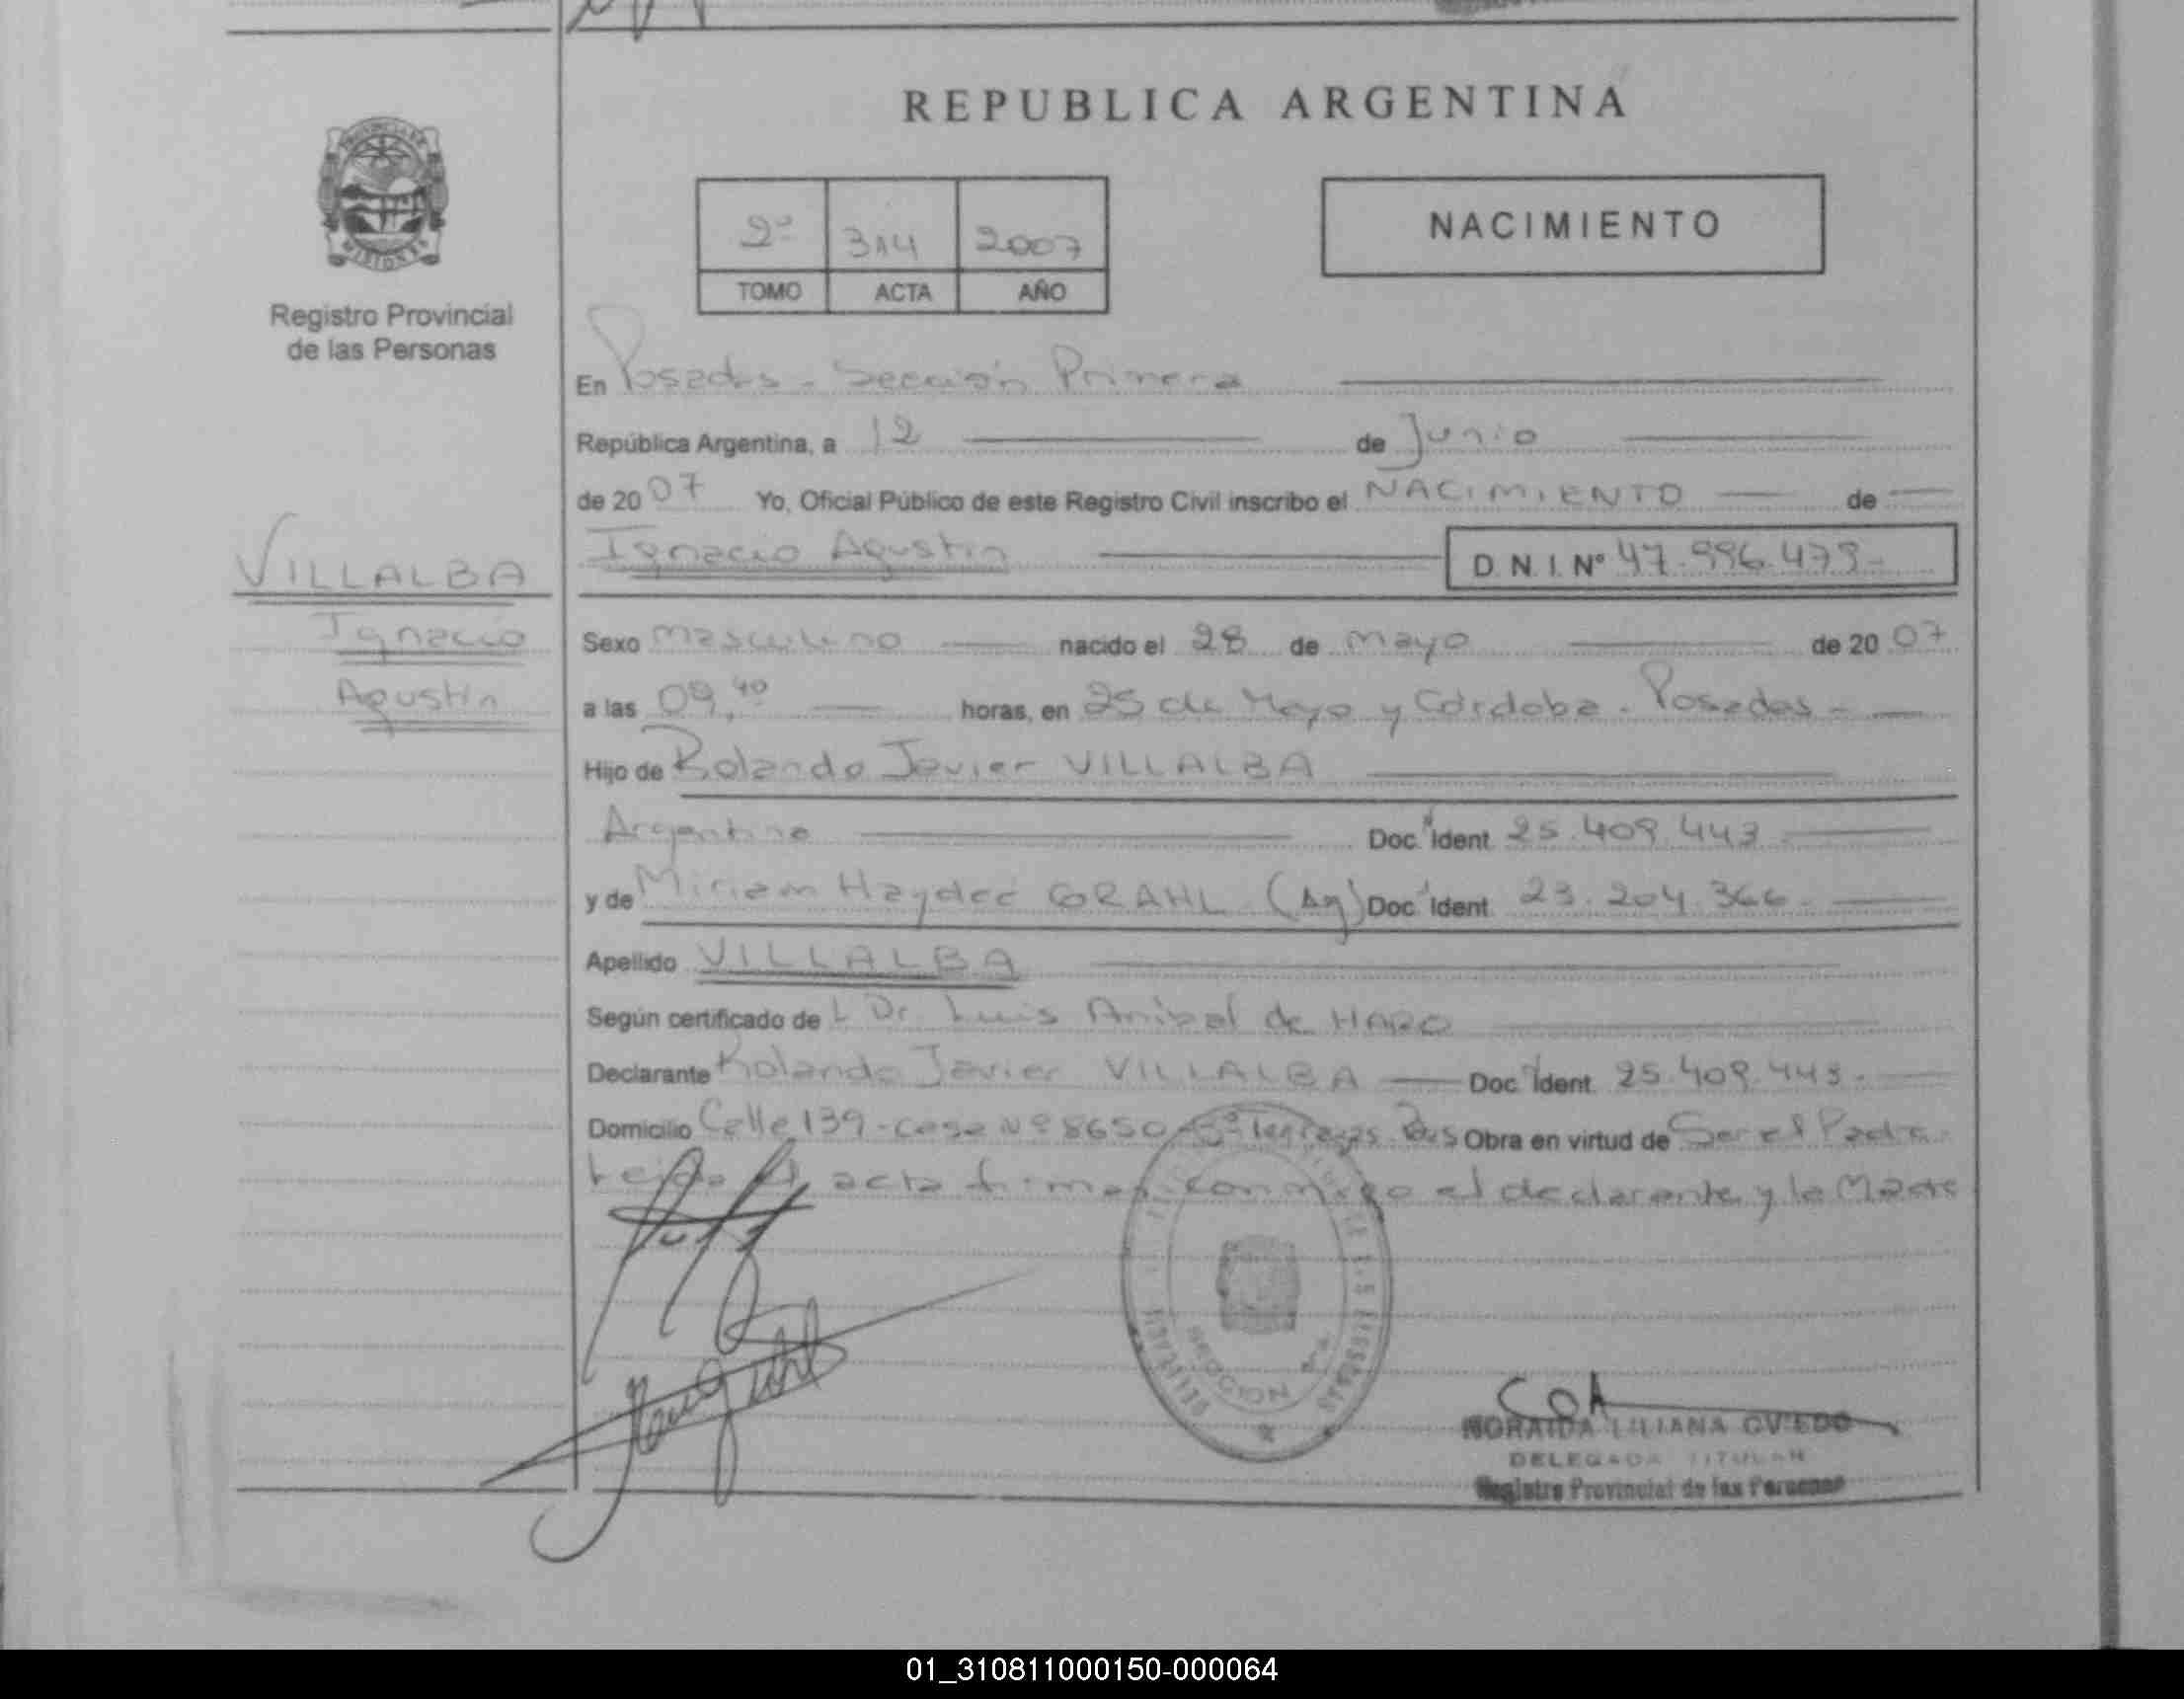 REPUBLICA ARGENTINA
2º 314 2007
TOMO ACTA AÑO
NACIMIENTO
PROVINCIA DE
MISIONES
Registro Provincial
de las Personas
VILLALBA
Ignacio
Agustín
En Posadas - Sección Primera
República Argentina, a 12 de Junio
de 2007 Yo, Oficial Público de este Registro Civil inscribo el NACIMIENTO de
Ignacio Agustín D.N.I. Nº 47.996.479-
Sexo masculino nacido el 28 de mayo de 2007
a las 09,40 horas, en 25 de Mayo y Córdoba - Posadas -
Hijo de Rolando Javier VILLALBA
Argentino Doc. Ident. 25.409.443
y de Miriam Haydeé GRAHL (Ag) Doc. Ident. 23.204.366-
Apellido VILLALBA
Según certificado de L Dr. Luis Anibal de HARO
Declarante Rolando Javier VILLALBA Doc. Ident. 25.409.443-
Domicilio Calle 139 - casa Nº 8650 Obra en virtud de Ser el Padre.
Leida el acta firman conmigo el declarante y la Madre
SECCION
NORAIDA LILIANA OVIEDO
DELEGADA TITULAR
Registro Provincial de las Personas
01_310811000150-000064